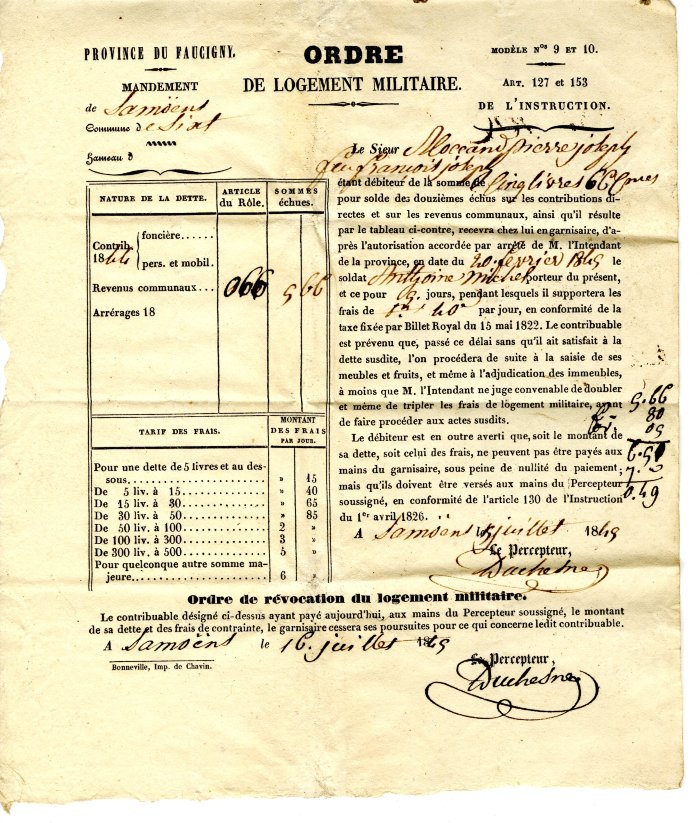 PROVINCE DU FAUCIGNY.
MANDEMENT
de Samoëns
Commune de Sixt
Hameau d
ORDRE
DE LOGEMENT MILITAIRE.
MODÈLE Nos 9 ET 10.
ART. 127 et 153
DE L'INSTRUCTION.
NATURE DE LA DETTE. ARTICLE du Rôle. SOMMES échues.
Contrib. 1844 foncière......
pers. et mobil.
Revenus communaux... 066 5 66
Arrérages 18
TARIF DES FRAIS. MONTANT DES FRAIS PAR JOUR.
Pour une dette de 5 livres et au des-
sous........................ » 15
De 5 liv. à 15........... » 40
De 15 liv. à 30........... » 65
De 30 liv. à 50........... » 85
De 50 liv. à 100.......... 2 »
De 100 liv. à 300......... 3 »
De 300 liv. à 500......... 5 »
Pour quelconque autre somme ma-
jeure...................... 6 »
Le Sieur Moccand pierre joseph
feu françois joseph
étant débiteur de la somme de Cinq livres 66 Cmes
pour solde des douzièmes échus sur les contributions di-
rectes et sur les revenus communaux, ainsi qu'il résulte
par le tableau ci-contre, recevra chez lui en garnisaire, d'a-
près l'autorisation accordée par arrêté de M. l'Intendant
de la province, en date du 20 février 1845 le
soldat Anthoine Michel porteur du présent,
et ce pour jours, pendant lesquels il supportera les
frais de 40 par jour, en conformité de la
taxe fixée par Billet Royal du 15 mai 1822. Le contribuable
est prévenu que, passé ce délai sans qu'il ait satisfait à la
dette susdite, l'on procédera de suite à la saisie de ses
meubles et fruits, et même à l'adjudication des immeubles,
à moins que M. l'Intendant ne juge convenable de doubler
et même de tripler les frais de logement militaire, avant
de faire procéder aux actes susdits.
Le débiteur est en outre averti que, soit le montant de
sa dette, soit celui des frais, ne peuvent pas être payés aux
mains du garnisaire, sous peine de nullité du paiement;
mais qu'ils doivent être versés aux mains du Percepteur
soussigné, en conformité de l'article 130 de l'Instruction
du 1er avril 1826.
5.66
80
05
6.51
0.49
A Samoëns juillet 1845
Le Percepteur,
Duchesne
Ordre de révocation du logement militaire.
Le contribuable désigné ci-dessus ayant payé aujourd'hui, aux mains du Percepteur soussigné, le montant
de sa dette et des frais de contrainte, le garnisaire cessera ses poursuites pour ce qui concerne ledit contribuable.
A Samoëns le 16 juillet 1845
Bonneville, Imp. de Chavin.
Le Percepteur,
Duchesne